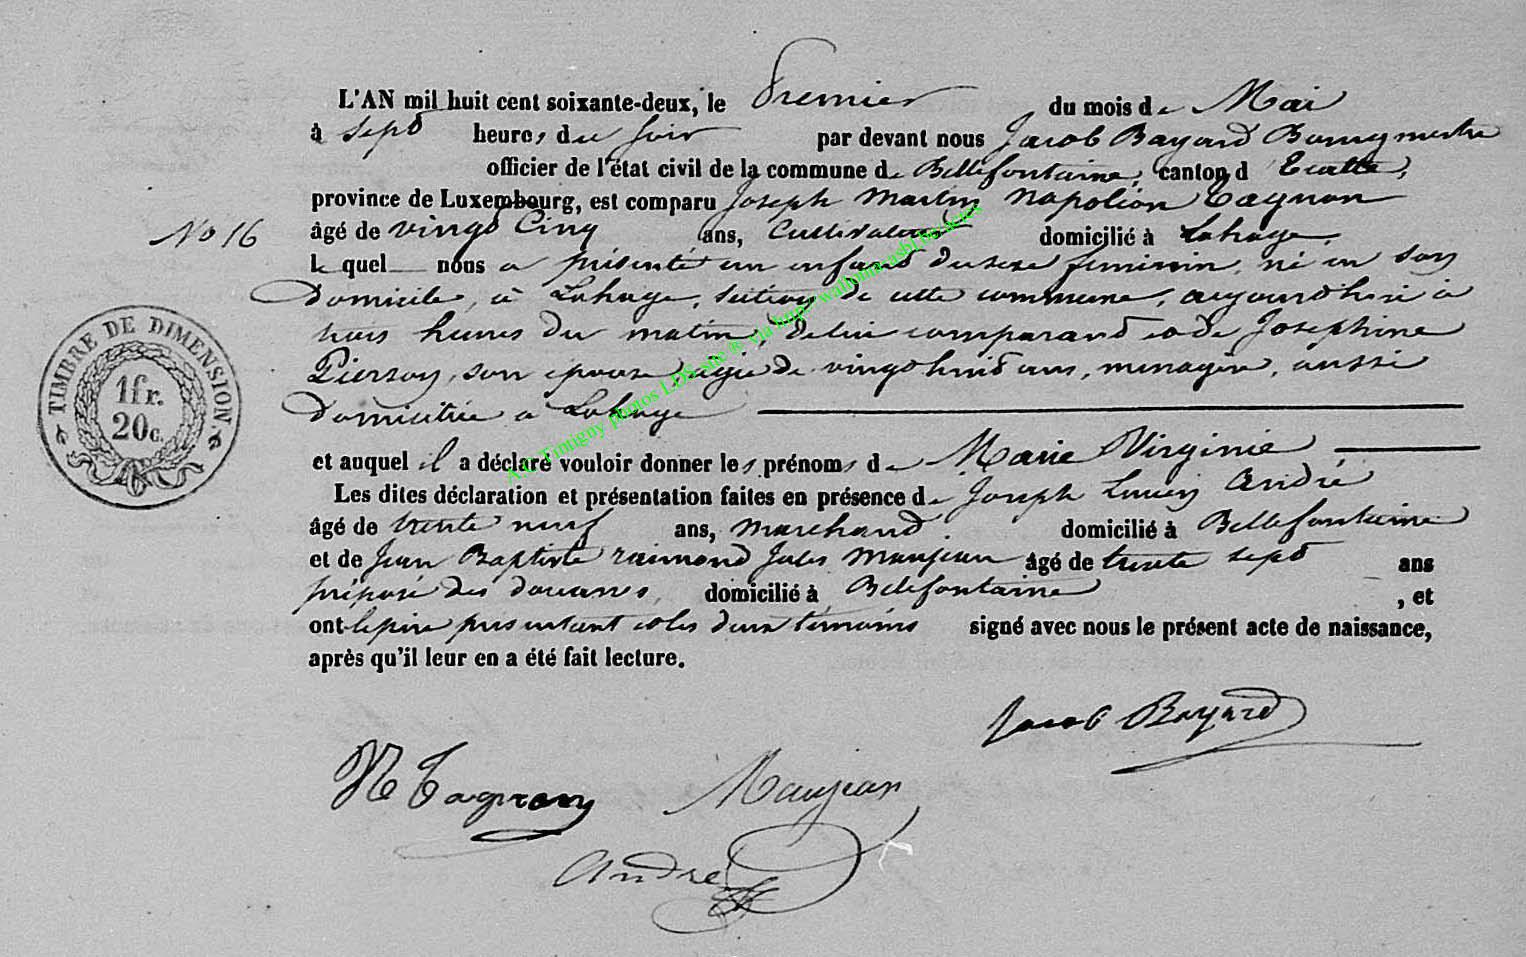 L'AN mil huit cent soixante-deux, le Premier du mois de Mai
à sept heures du soir par devant nous Jacob Bayard Bourgmestre
officier de l'état civil de la commune de Bellefontaine, canton d'Etalle,
province de Luxembourg, est comparu Joseph Martin Napoléon Tagnon
No 16 âgé de vingt Cinq ans, Cultivateur domicilié à Lahage,
lequel nous a présenté un enfant du sexe féminin, né en son
domicile, à Lahage, section de cette commune, aujourd'hui à
trois heures du matin, de lui comparant et de Joséphine
Pierson, son épouse âgée de vingt huit ans, ménagère, aussi
domiciliée à Lahage
et auquel il a déclaré vouloir donner les prénoms de Marie Virginie
Les dites déclaration et présentation faites en présence de Joseph Lucien André
âgé de trente neuf ans, marchand domicilié à Bellefontaine
et de Jean Baptiste raimond Jules Maujean âgé de trente sept ans
préposé des douanes, domicilié à Bellefontaine, et
ont le père présentant et les deux témoins signé avec nous le présent acte de naissance,
après qu'il leur en a été fait lecture.
TIMBRE DE DIMENSION
1fr.
20c.
A.C Tintigny photos LDS site ® via http://wallonia-asbl.be/actes
Jacob Bayard
N Tagnon Maujean
André